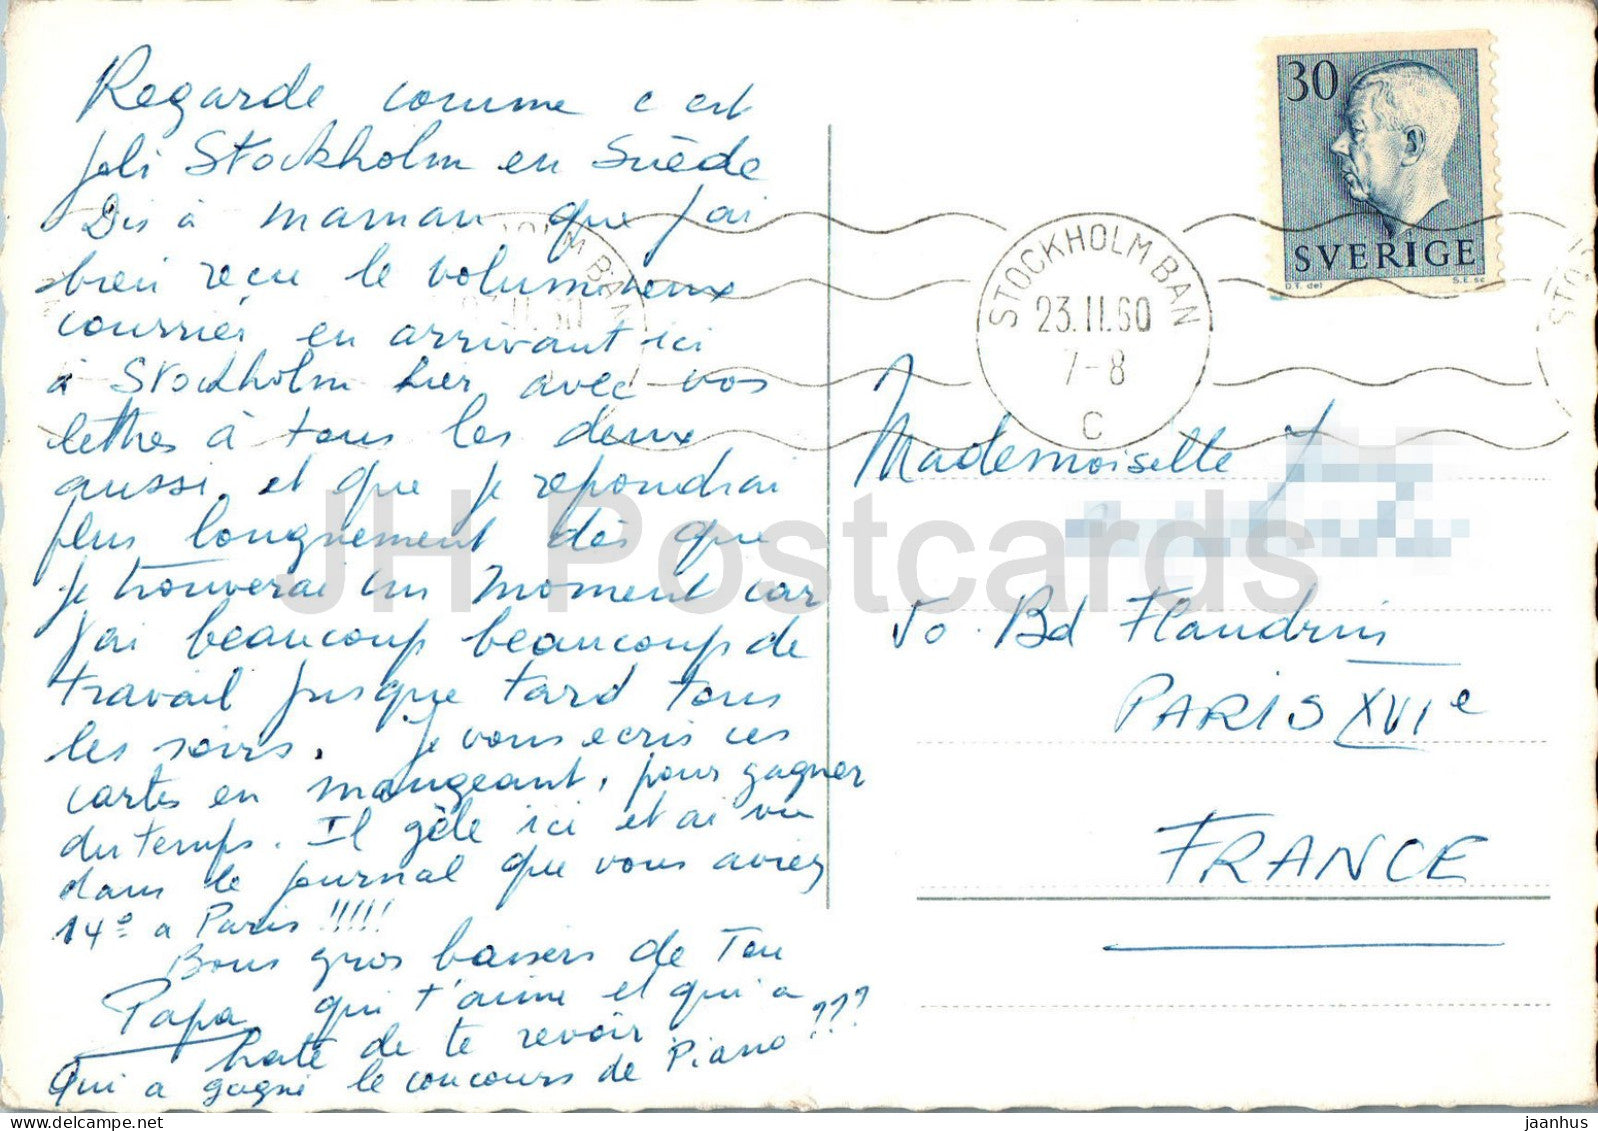 Regarde comme c'est
joli Stockholm en Suède
Dis à maman que j'ai
bien reçu le volumineux
courrier en arrivant ici
à Stockholm hier avec vos
lettres à tous les deux
aussi, et que je repondrai
plus longuement dès que
je trouverai un moment car
j'ai beaucoup beaucoup de
travail jusque tard tous
les soirs. Je vous ecris ces
cartes en mangeant, pour gagner
du temps. Il gèle ici et ai vu
dans le journal que vous aviez
14° a Paris !!!!!
Bons gros baisers de Ton
Papa qui t'aime et qui a
hate de te revoir
Qui a gagné le concours de Piano ???
30
SVERIGE
D.T. del S.E. sc
STOCKHOLM BAN
23.11.60
7-8
C
Mademoiselle J
50. Bd Flandrin
PARIS XVIe
FRANCE
JH Postcards
www.delcampe.net
jaanhus